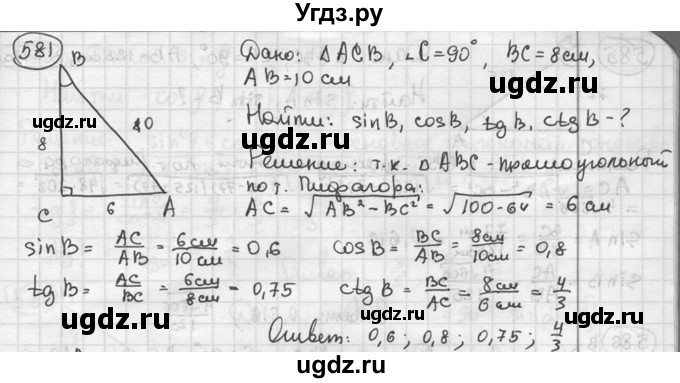 Угдз.ру
581
Дано: △ACB, ∠C=90°, BC=8см,
AB=10 см
Найти: sinB, cosB, tgB, ctgB-?
Решение: т.к. △ABC-прямоугольный
по т. Пифагора:
AC = √(AB²-BC²) = √(100-64) = 6 см
B
8
10
C
6
A
sinB = AC/AB = 6см/10см = 0,6 cosB = BC/AB = 8см/10см = 0,8
tgB = AC/BC = 6см/8см = 0,75 ctgB = BC/AC = 8см/6см = 4/3
Ответ: 0,6; 0,8; 0,75; 4/3
ugdz.ru
ugdz.ru
ugdz.ru
ugdz.ru
ugdz.ru
ugdz.ru
ugdz.ru
ugdz.ru
ugdz.ru
ugdz.ru
ugdz.ru
ugdz.ru